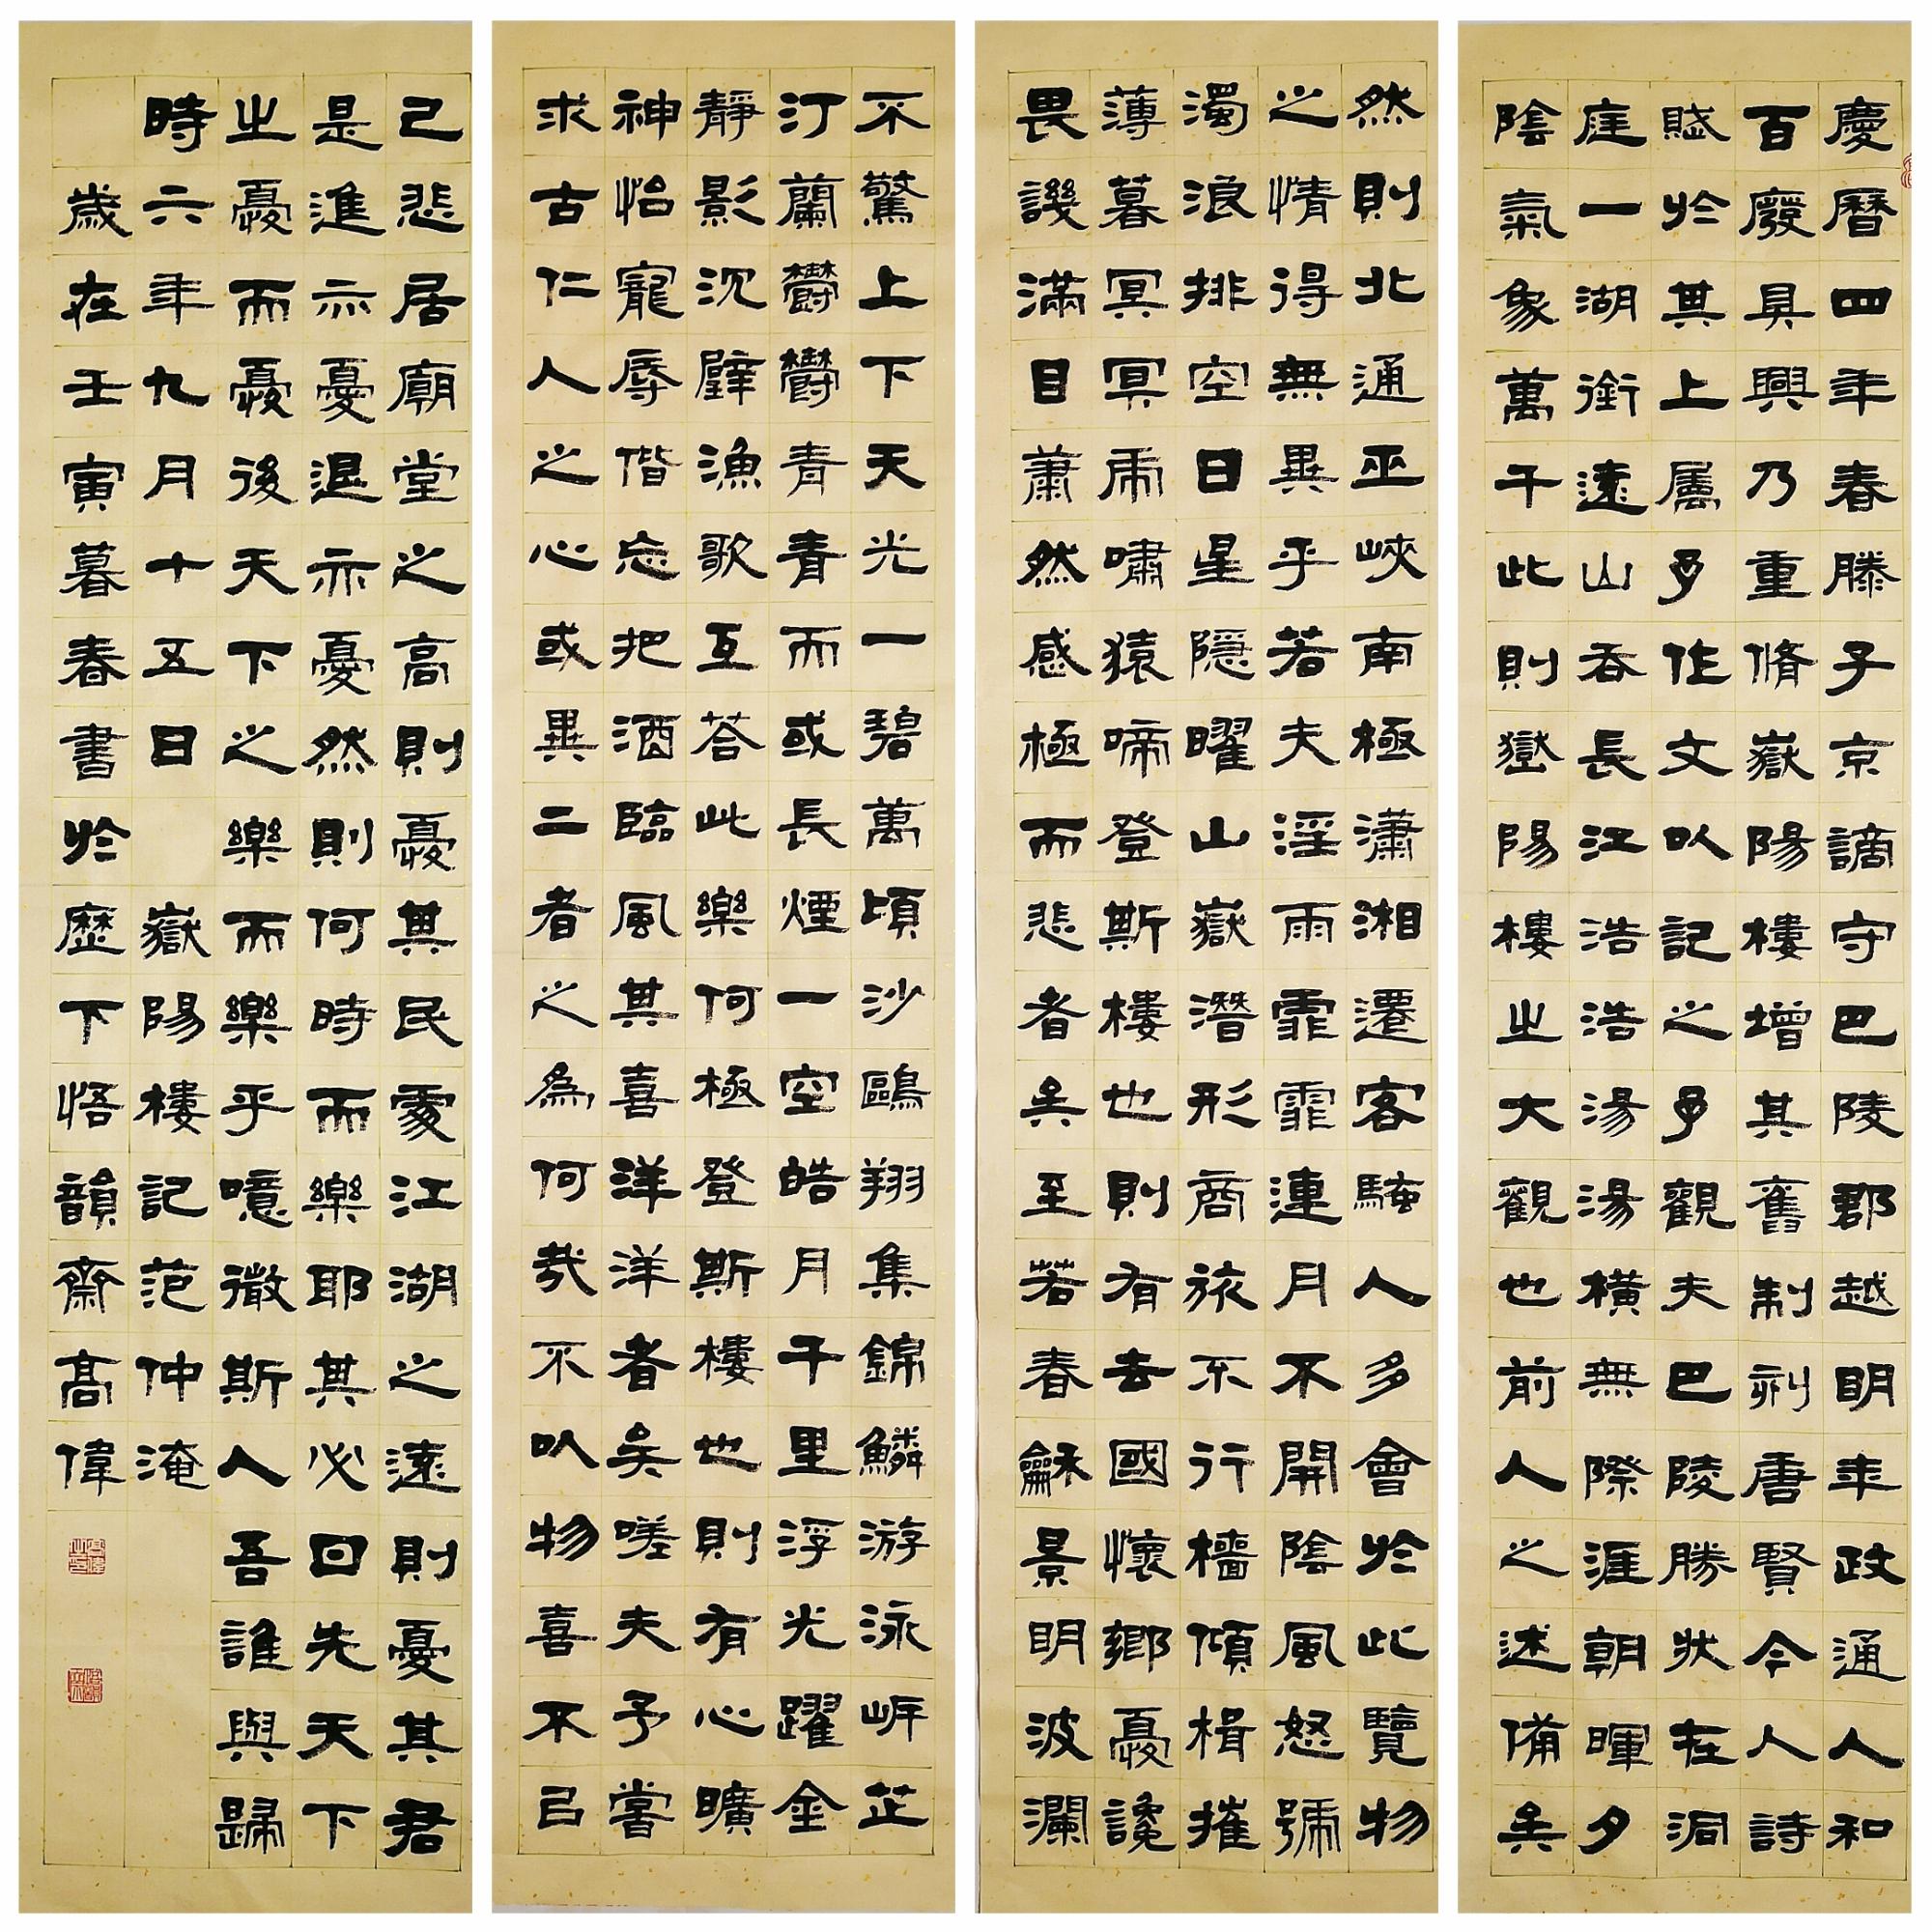 慶曆四年春滕子京謫守巴陵郡越明年政通人和
百廢具興乃重脩嶽陽樓增其舊制刻唐賢今人詩
賦於其上属予作文以記之予觀夫巴陵勝狀在洞
庭一湖銜遠山吞長江浩浩湯湯橫無際涯朝暉夕
陰氣象萬千此則嶽陽樓之大觀也前人之述備矣
然則北通巫峽南極瀟湘遷客騷人多會於此覽物
之情得無異乎若夫淫雨霏霏連月不開陰風怒號
濁浪排空日星隱曜山嶽潛形商旅不行檣傾楫摧
薄暮冥冥虎嘯猿啼登斯樓也則有去國懷鄉憂讒
畏譏滿目蕭然感極而悲者矣至若春龢景明波瀾
不驚上下天光一碧萬頃沙鷗翔集錦鱗游泳岸芷
汀蘭欝欝青青而或長煙一空皓月千里浮光躍金
靜影沉璧漁歌互荅此樂何極登斯樓也則有心曠
神怡寵辱偕忘把酒臨風其喜洋洋者矣嗟夫予嘗
求古仁人之心或異二者之為何哉不以物喜不以
己悲居廟堂之高則憂其民處江湖之遠則憂其君
是進亦憂退亦憂然則何時而樂耶其必曰先天下
之憂而憂後天下之樂而樂乎噫微斯人吾誰與歸
時六年九月十五日 嶽陽樓記范仲淹
歲在壬寅暮春書於歷下悟韻齋高偉